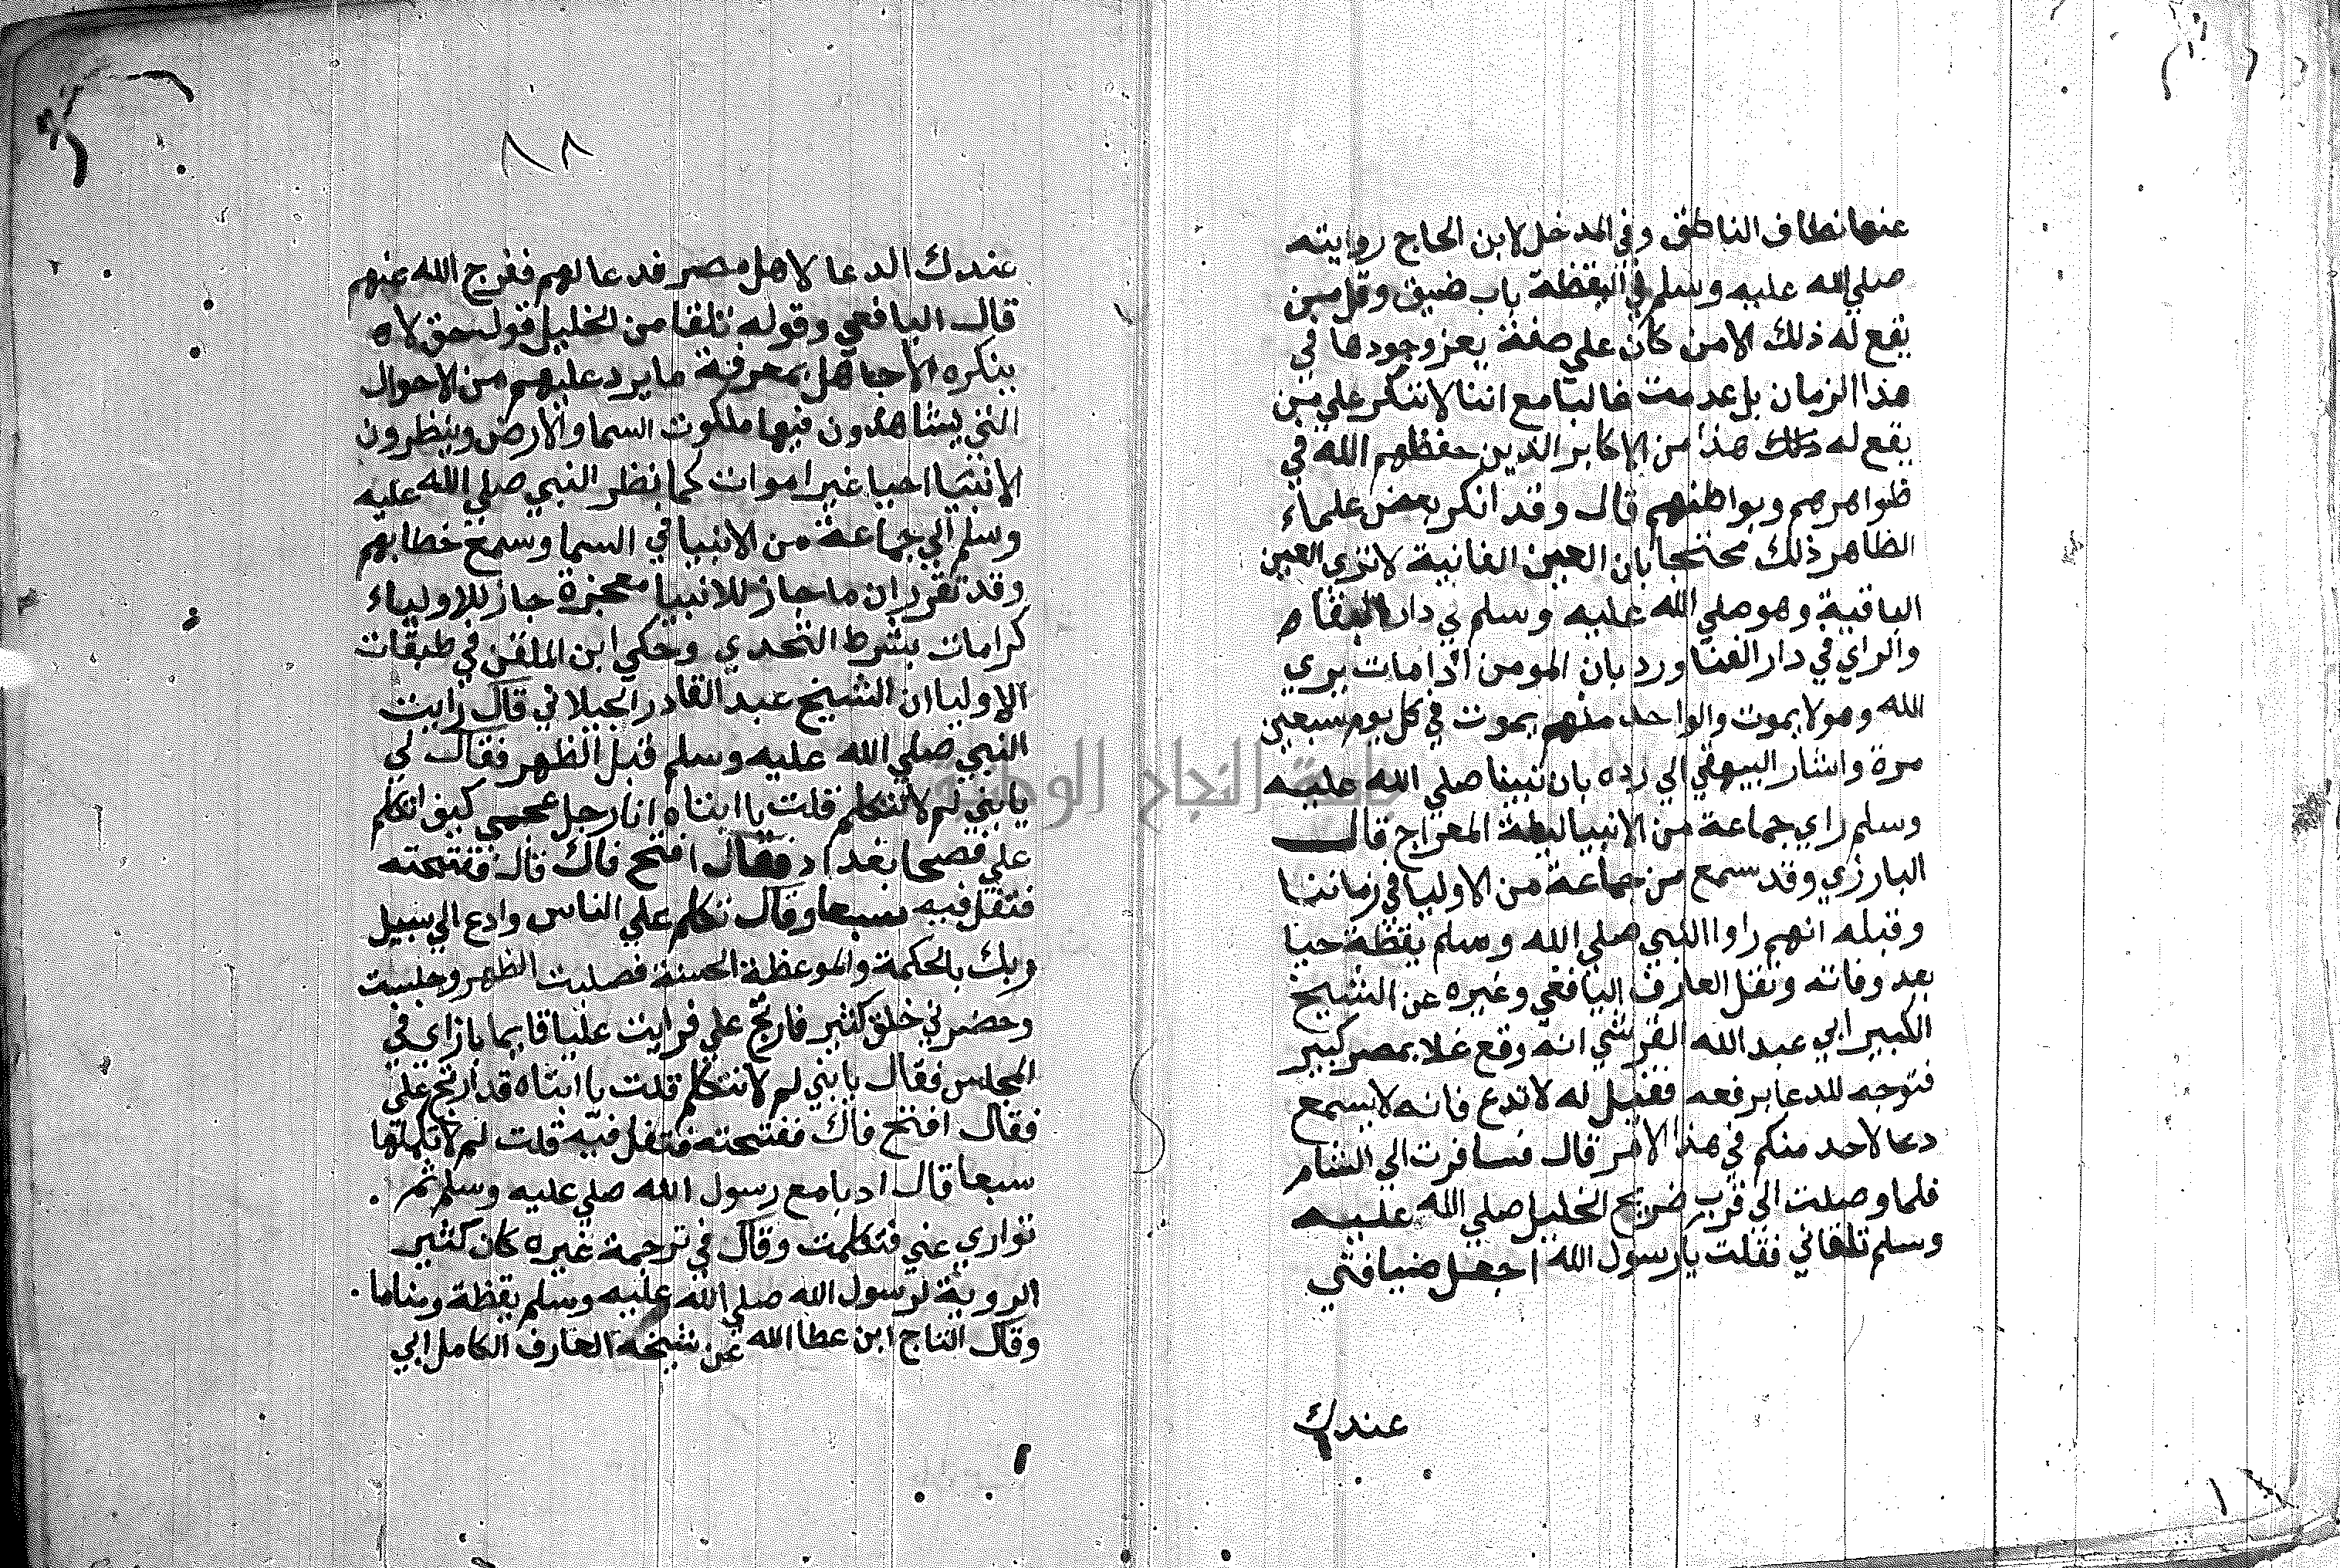 عنها نطاف الناطق وفي المدخل لابن الحاج روايته
صلي الله عليه وسلم في اليقظة باب ضيق وقل من
يقع له ذلك الا من كان علي صفة يعز وجودها في
هذا الزمان بل عدمت غالبا مع اننا لا ننكر علي من
يقع له ذلك هذا من الاكابر الذين حفظهم الله في
ظواهرهم وبواطنهم قال وقد انكر بعض علماء
الظاهر ذلك محتجا بان العين الفانية لا تري العين
الباقية وهو صلي الله عليه وسلم في دار البقا
والراي في دار الفنا ورد بان المومن اذا مات يري
الله وهو لا يموت والواحد منهم يموت في كل يوم سبعين
مرة واشار البيهقي الي رده بان نبينا صلي الله عليه
وسلم راي جماعة من الانبيا ليلة المعراج قال
البارزي وقد سمع من جماعة من الاوليا في زماننا
وقبله انهم راوا النبي صلي الله وسلم يقظة حيا
بعد وفاته ونقل العارف اليافعي وغيره عن الشيخ
الكبير ابي عبد الله القرشي انه وقع غلا بمصر كبير
فتوجه للدعا برفعه فقيل له لا تدع فانه لا يسمع
دعا لاحد منكم في هذا الامر قال فسافرت الي الشام
فلما وصلت الي قرب ضريح الخليل صلي الله عليه
وسلم تلقاني فقلت يا رسول الله اجعل ضيافتي
عندك
٨٨
عندك الدعا لاهل مصر فدعا لهم ففرج الله عنهم
قال اليافعي وقوله تلقا من الخليل قول حق لا
ينكره الا جاهل بمعرفة ما يرد عليهم من الاحوال
التي يشاهدون فيها ملكوت السما والارض وينظرون
الانبيا احيا غير اموات كما نظر النبي صلي الله عليه
وسلم الي جماعة من الانبيا في السما وسمع خطابهم
وقد تقرر ان ما جاز للانبيا معجزة جاز للاولياء
كرامات بشرط التحدي وحكي ابن الملقن في طبقات
الاوليا ان الشيخ عبد القادر الجيلاني قال رايت
النبي صلي الله عليه وسلم قبل الظهر فقال لي
يا بني لم لا تتكلم قلت يا ابتاه انا رجل عجمي كيف اتكلم
علي فصحا بغداد فقال افتح فاك قال ففتحته
فتفل فيه سبعا وقال تكلم علي الناس وادع الي سبيل
ربك بالحكمة والموعظة الحسنة فصليت الظهر وجلست
وحضرني خلق كثير فارتج علي فرايت عليا قايما بازاي في
المجلس فقال يا بني لم لا تتكلم قلت يا ابتاه قد ارتج علي
فقال افتح فاك ففتحته فتفل فيه قلت لم لا تكملها
سبعا قال ادبا مع رسول الله صلي عليه وسلم ثم
تواري عني فتكلمت وقال في ترجمة غيره كان كثير
الروية لرسول الله صلي الله عليه وسلم يقظة ومناما
وقال التاج ابن عطا الله عن شيخه العارف الكامل ابي
جامعة النجاح الوطنية